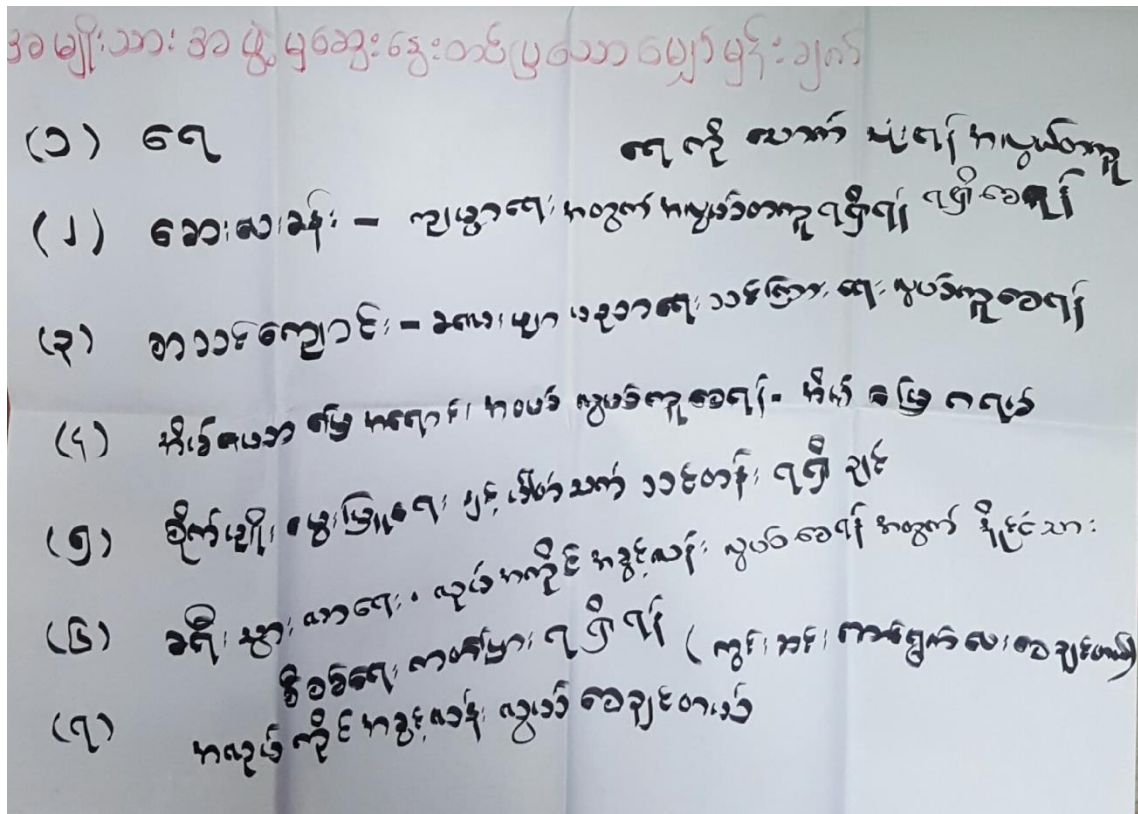 အမျိုးသား အဖွဲ့မှဆွေးနွေးတင်ပြသောမျှော်မှန်းချက်
(၁) ရေ ရေကို သောက် သုံးရန် အလွယ်တကူ
(၂) ဆေးပေးခန်း - ကျမ္မာရေး အတွက် အလွယ်တကူရရှိရန် ရရှိစေရန်
(၃) စာသင်ကျောင်း - ကလေးများ ပညာရေး သင်ကြားရေး လွယ်ကူစေရန်
(၄) အိမ်ခြေ လွယ်ကူစေရန် - အိမ် မြေ
(၅) စိုက်ပျိုး မွေးမြူရေး နှင့်ပတ်သက် သင်တန်း ရရှိ ချင်
(၆) ခရီး သွား လာရေး - လုပ်အကိုင် အခွင့်လမ်း လွယ် စေရန် အတွက် နိုင်ငံသား
စိစစ်ရေး ကတ်များ ရရှိရန် (ကွင်းဆင်း စေချင်တယ်)
(၇) အလုပ်ကိုင် အခွင့်လမ်း လွယ် စေချင်တယ်